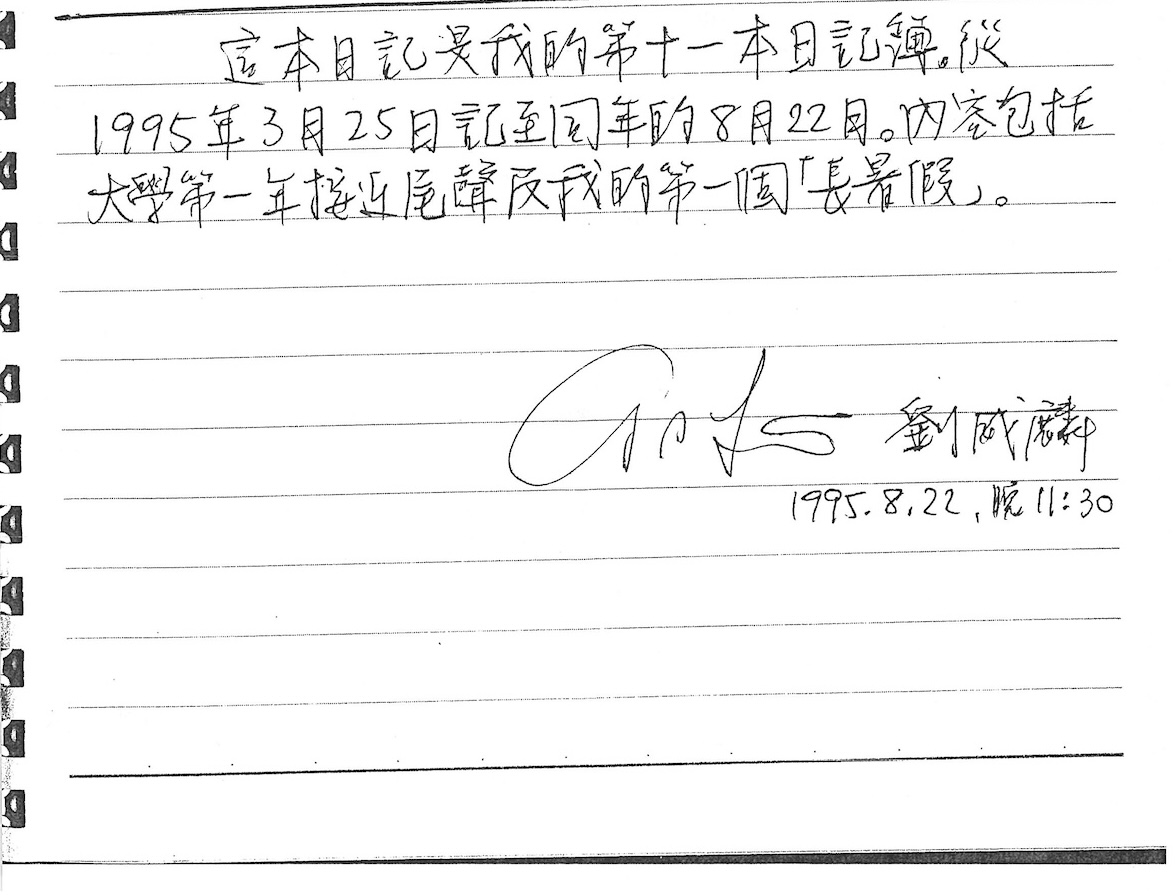 這本日記是我的第十一本日記簿。從
1995年3月25日記至同年的8月22日。內容包括
大學第一年接近尾聲及我的第一個「長暑假」。
劉成麟
1995.8.22,晚11:30